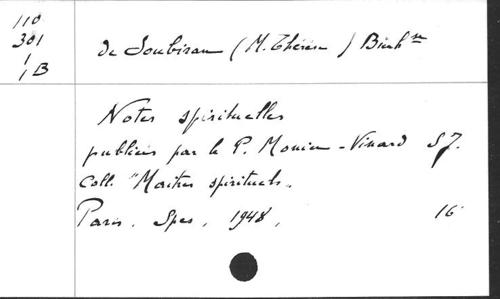 110
301
1
1B
de Soubiran (M. Thérèse) Bienh se
Notes spirituelles
publiées par le P. Monier-Vinard S.J.
Coll. "Maîtres spirituels"
Paris. Spes, 1948, 16